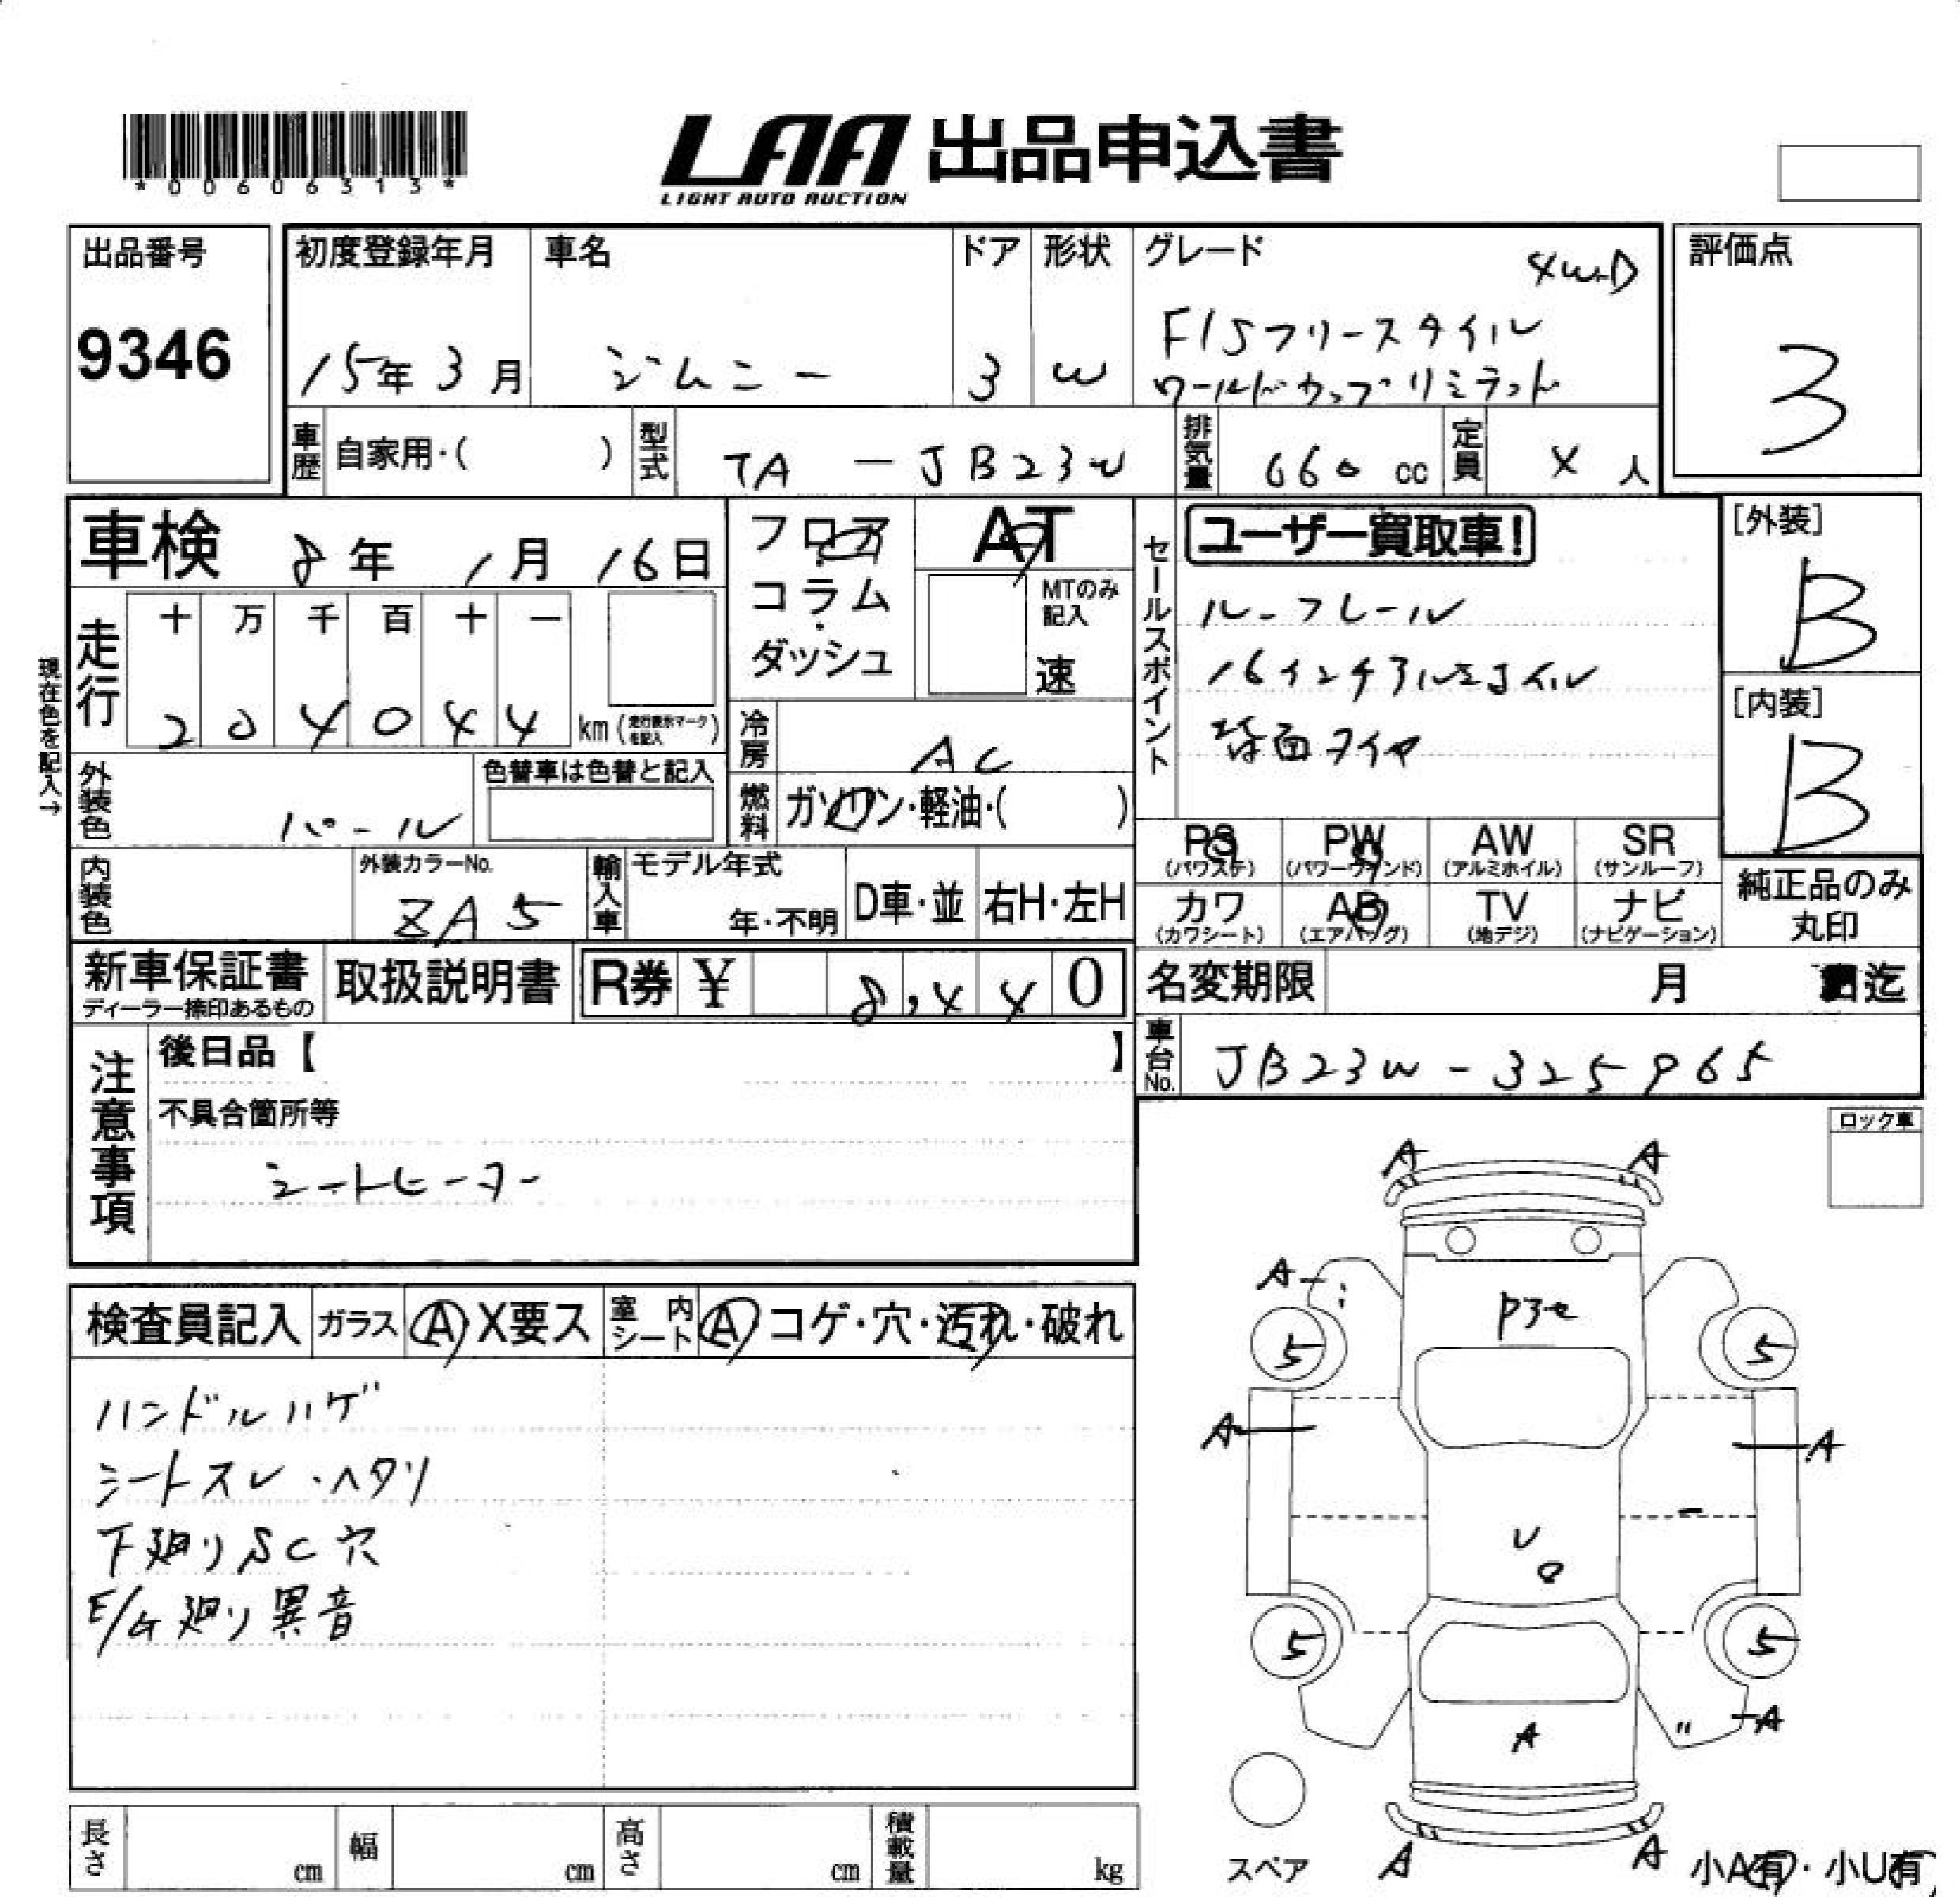 *00606313*
LAA 出品申込書
LIGHT AUTO AUCTION
出品番号
9346
初度登録年月
15年 3月
車名
ジムニー
ドア
3
形状
W
グレード
4WD
FISフリースタイル
ワールドカップリミテッド
評価点
3
車歴 自家用・( )
型式 TA - JB23W
排気量 660 cc
定員 4 人
車検 8年 1月 16日
フロア・コラム・ダッシュ
AT
MTのみ記入
速
セールスポイント
ユーザー買取車!
ルーフレール
16インチアルミホイル
背面タイヤ
[外装]
B
[内装]
B
現在色を記入→
走行
十 万 千 百 十 一
2 0 4 0 4 4 km (走行表示マークを記入)
冷房 AC
外装色 パール
色替車は色替と記入
燃料 ガソリン・軽油・( )
PS (パワステ) PW (パワーウインド) AW (アルミホイル) SR (サンルーフ)
カワ (カワシート) AB (エアバッグ) TV (地デジ) ナビ (ナビゲーション)
純正品のみ丸印
内装色
外装カラーNo.
ZA5
輸入車
モデル年式
年・不明
D車・並
右H・左H
新車保証書
ディーラー捺印あるもの
取扱説明書
R券 ¥ 8,440
名変期限 月 迄
車台No. JB23W-325965
注意事項
後日品【 】
不具合箇所等
シートヒーター
ロック車
検査員記入
ガラス A・X要ス
室内シート A コゲ・穴・汚れ・破れ
ハンドルハゲ
シートスレ・ヘタリ
下廻りSC穴
E/G廻り異音
A A
A
5 5
A A
U
5 5
A
A
A A
スペア
小A有・小U有
長さ cm
幅 cm
高さ cm
積載量 kg